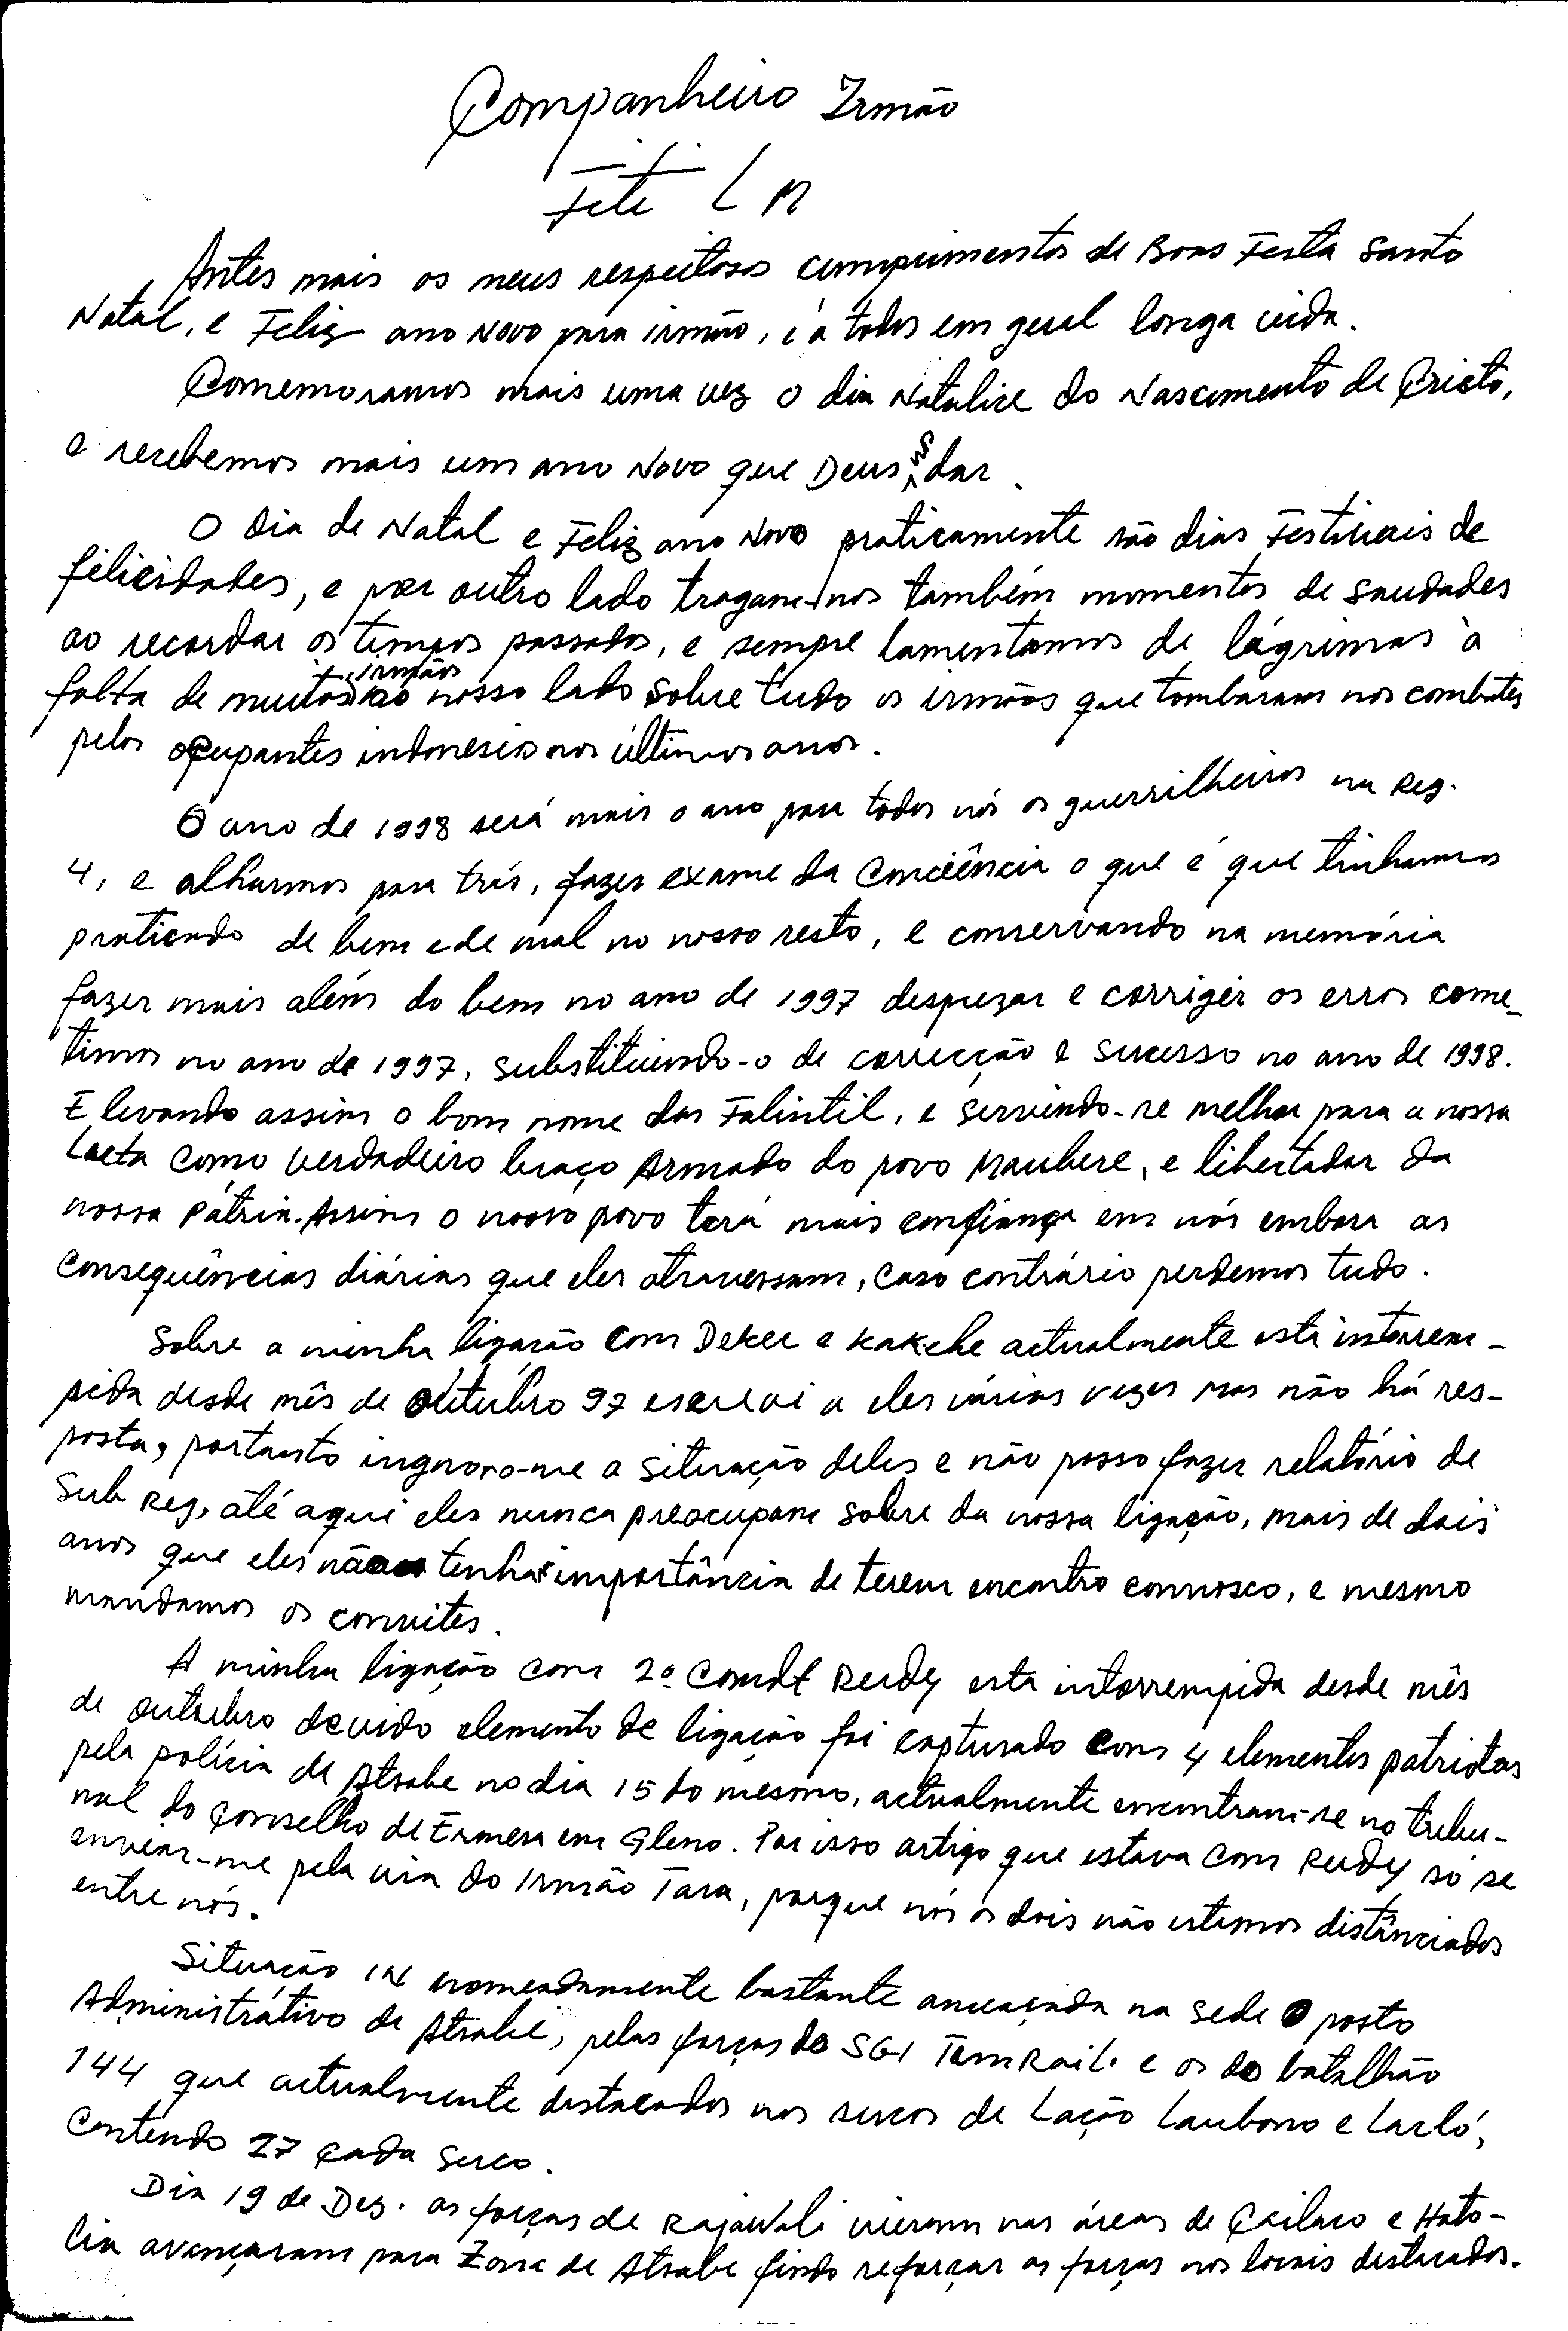 Companheiro Irmão
Antes mais os meus respeitosos cumprimentos de Boas Festa Santo
Natal, e Feliz ano Novo para irmão, e a todos em geral longa vida.
Comemoramos mais uma vez o dia Natalice do Nascimento de Cristo,
e recebemos mais um ano Novo que Deus nos dar.
O Dia de Natal e Feliz ano Novo praticamente são dias Festivais de
felicidades, e por outro lado tragam-nos também momentos de saudades
ao recordar os tempos passados, e sempre lamentamos de lágrimas à
falta de muitos irmãos ao nosso lado sobre tudo os irmãos que tombaram nos combates
pelos ocupantes indonesios nos últimos anos.
O ano de 1998 será mais o ano para todos nós os guerrilheiros na Reg.
4, e olharmos para trás, fazer exame da Conciência o que é que tinhamos
praticado de bem e de mal no nosso resto, e conservando na memória
fazer mais além do bem no ano de 1997 desprezar e corriger os erros come-
timos no ano de 1997, substituindo-o de correcção e sucesso no ano de 1998.
E levando assim o bom nome das Falintil, e servindo-se melhor para a nossa
Luta como verdadeiro braço Armado do povo Maubere, e libertador da
nossa Pátria. Assim o nosso povo terá mais confiança em nós embora as
Consequências diárias que eles atravessam, caso contrário perdemos tudo.
Sobre a minha ligação com Deker e Kakehe actualmente está intorrom-
pida desde mês de Outubro 97 escrevi a eles várias vezes mas não há res-
posta, portanto ingnoro-me a situação deles e não posso fazer relatório de
Sub Reg, até aqui eles nunca preocupam sobre da nossa ligação, mais de dois
anos que eles não tenha importância de terem encontro connosco, e mesmo
mandamos os convites.
A minha ligação com 2º Comdt Rendy esta intorrempida desde mês
de outubro devido elemento de ligação foi capturado com 4 elementos patriotas
pela polícia de Atsabe no dia 15 do mesmo, actualmente encontram-se no tribu-
nal do Conselho de Ermera em Gleno. Por isso artigo que estava com Rendy só se
enviar-me pela via do Irmão Tara, porque nós os dois não estamos distânciados
entre nós.
Situação IN nomeadamente bastante ameaçada na sede o posto
Administrátivo de Atsabe, pelas forças do SGI e os do batalhão
144 que actualmente destacados nos sucos de Lação Laubono eЛарló,
Contendo 27 cada suco.
Dia 19 de Dez. as forças de Rajawali vieram nas áreas de Cailaco e Hato-
lia avançaram para Zona de Atsabe findo reforçar as forças nos locais destacados.